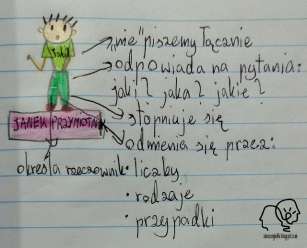 „nie" piszemy łącznie
odpowiada na pytania:
jaki? jaka? jakie?
stopniuje się
JANEK PRZYMIOTNIK
odmienia się przez:
określa rzeczownik
• liczby
• rodzaje
• przypadki